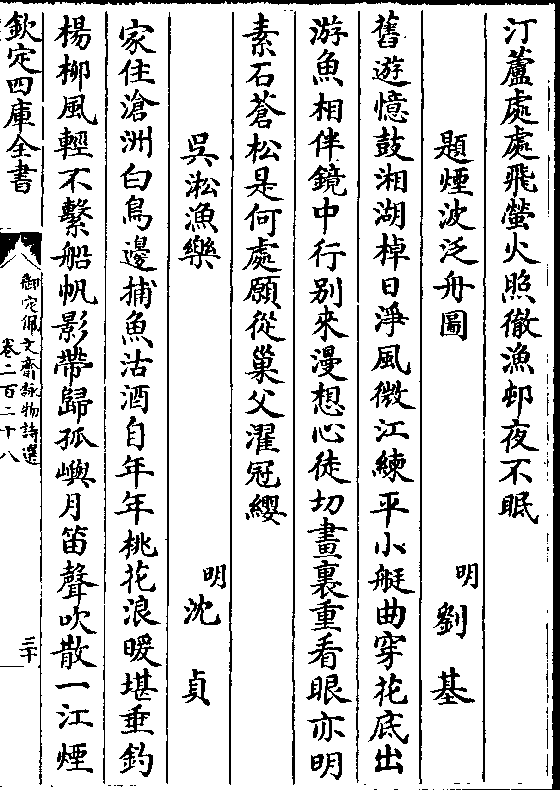 汀蘆處處飛螢火照徹漁邨夜不眠
題煙波泛舟圖
明劉基
舊遊憶鼓湘湖棹日淨風微江練平小艇曲穿花底出
游魚相伴鏡中行别來漫想心徒切畫裏重看眼亦明
素石蒼松是何處願從巢父濯冠纓
吳淞漁樂
明沈貞
家住滄洲白鳥邊捕魚沽酒自年年桃花浪暖堪垂釣
楊柳風輕不繫船帆影帶歸孤嶼月笛聲吹散一江煙
欽定四庫全書
御定佩文齋詠物詩選
卷二百二十八
三十